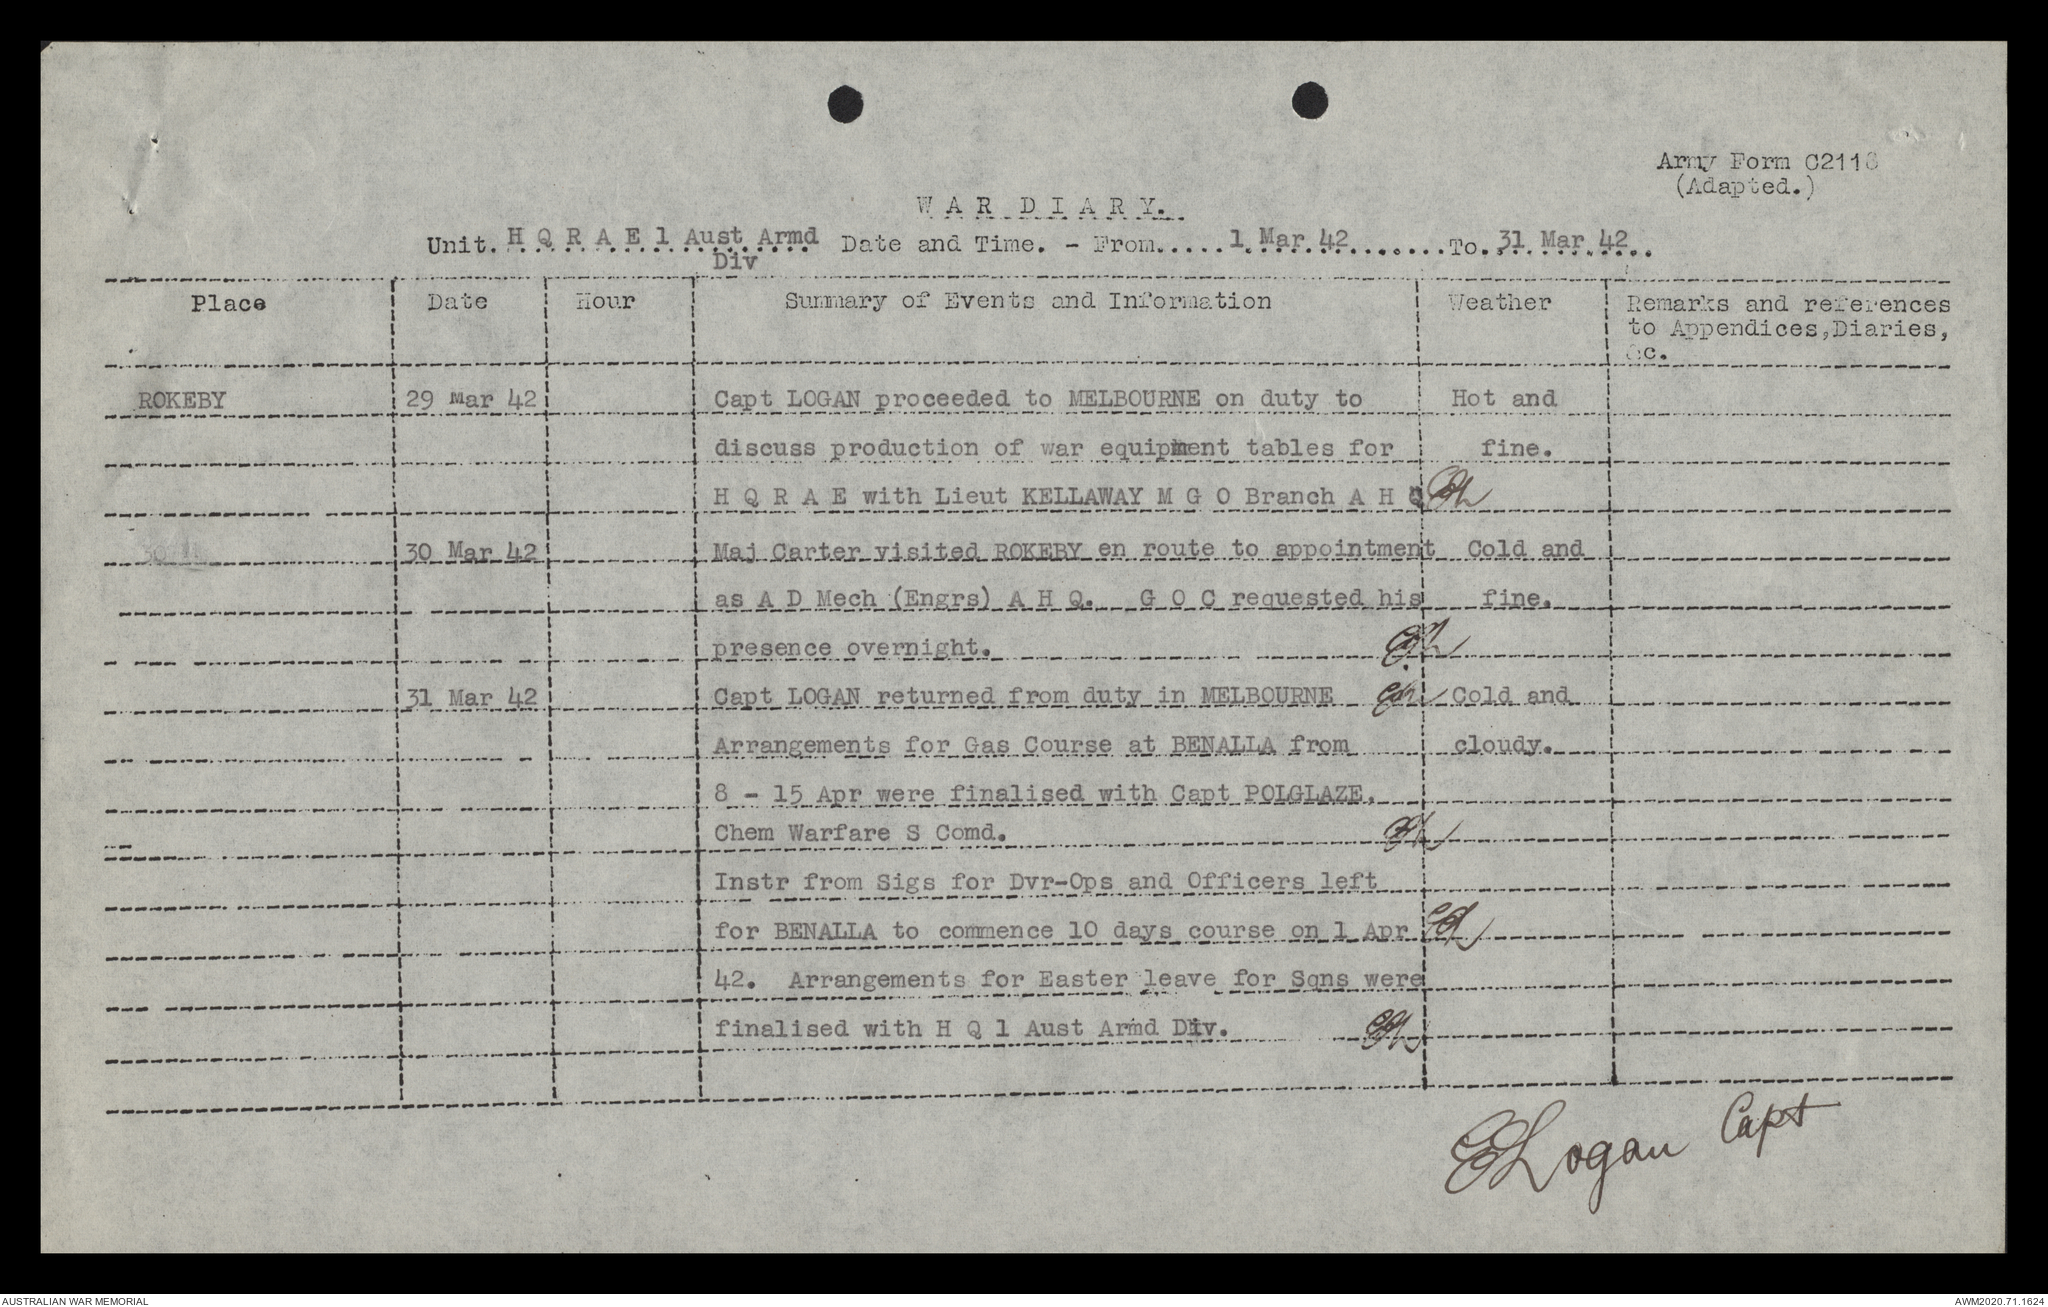 Army Form C2118
(Adapted.)
WAR DIARY.
Unit. H Q R A E 1 Aust Armd Div Date and Time. - From.....1 Mar 42........To.31 Mar 42..
Place Date Hour Summary of Events and Information Weather Remarks and references to Appendices,Diaries, &c.
ROKEBY 29 Mar 42 Capt LOGAN proceeded to MELBOURNE on duty to Hot and
discuss production of war equipment tables for fine.
H Q R A E with Lieut KELLAWAY M G O Branch A H Q
30 Mar 42 Maj Carter visited ROKEBY en route to appointment Cold and
as A D Mech (Engrs) A H Q. G O C requested his fine.
presence overnight.
31 Mar 42 Capt LOGAN returned from duty in MELBOURNE Cold and
Arrangements for Gas Course at BENALLA from cloudy.
8 - 15 Apr were finalised with Capt POLGLAZE,
Chem Warfare S Comd.
Instr from Sigs for Dvr-Ops and Officers left
for BENALLA to commence 10 days course on 1 Apr
42. Arrangements for Easter leave for Sqns were
finalised with H Q 1 Aust Armd Div.
ELogan Capt
AUSTRALIAN WAR MEMORIAL AWM2020.71.1624